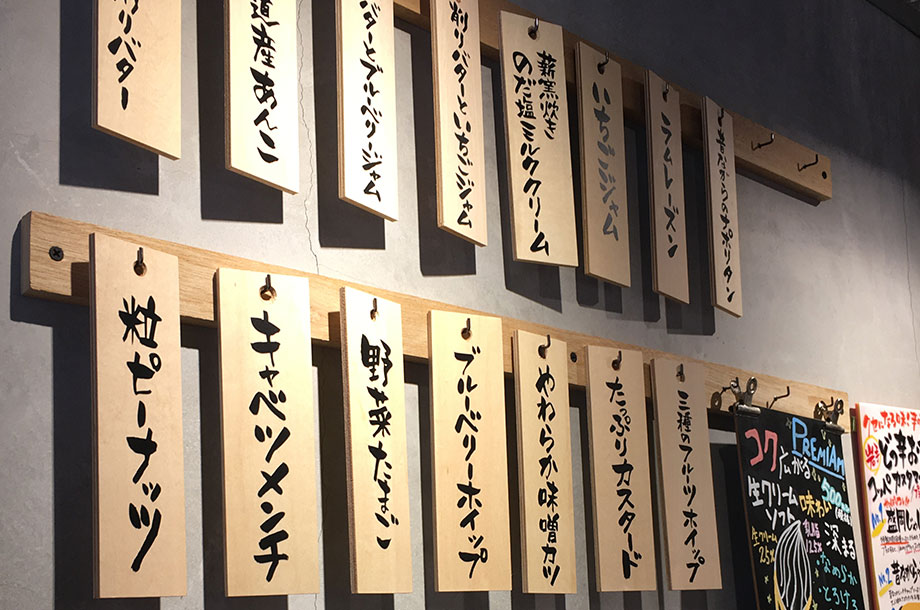 削りバター
道産あんこ
バターとブルーベリージャム
削りバターといちごジャム
薪窯炊き
のだ塩ミルククリーム
いちごジャム
ラムレーズン
昔ながらのナポリタン
粒ピーナッツ
キャベツメンチ
野菜たまご
ブルーベリーホイップ
やわらか味噌カツ
たっぷりカスタード
三種のフルーツホイップ
PREMIAM
コク广がる
生クリーム
ソフト
味わい
生クリーム
25%
乳脂
12.5%
深まる
なめらか
とろける
No.1
盛岡
No.2